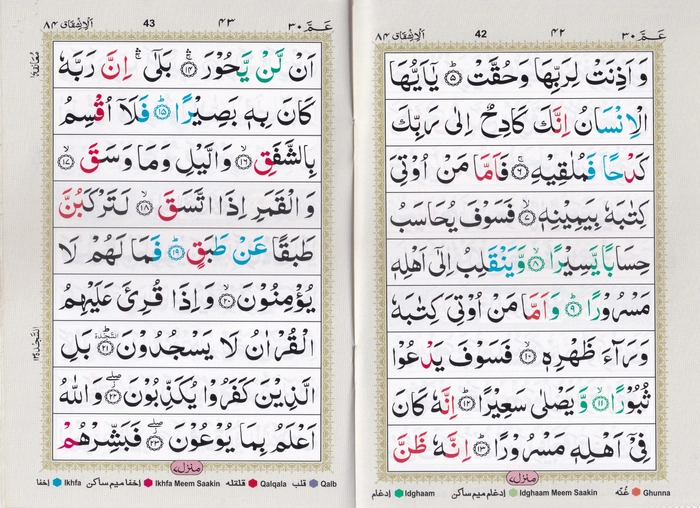 عَمَّ ٣٠
٤٢
42
اَلْاِنْشِقَاق ٨٤
وَ اَذِنَتْ لِرَبِّهَا وَحُقَّتْ ۝٥ يٰۤاَيُّهَا
الْاِنْسَانُ اِنَّكَ كَادِحٌ اِلٰى رَبِّكَ
كَدْحًا فَمُلٰقِيْهِ ۝٦ فَاَمَّا مَنْ اُوْتِيَ
كِتٰبَهٗ بِيَمِيْنِهٖ ۝٧ فَسَوْفَ يُحَاسَبُ
حِسَابًا يَّسِيْرًا ۝٨ وَّيَنْقَلِبُ اِلٰۤى اَهْلِهٖ
مَسْرُوْرًا ۝٩ وَاَمَّا مَنْ اُوْتِيَ كِتٰبَهٗ
وَرَآءَ ظَهْرِهٖ ۝١٠ فَسَوْفَ يَدْعُوْا
ثُبُوْرًا ۝١١ وَّيَصْلٰى سَعِيْرًا ۝١٢ اِنَّهٗ كَانَ
فِيْۤ اَهْلِهٖ مَسْرُوْرًا ۝١٣ اِنَّهٗ ظَنَّ
منزل ٧
ادغام Idghaam ادغام میم ساکن Idghaam Meem Saakin غُنّه Ghunna
عَمَّ ٣٠
٤٣
43
اَلْاِنْشِقَاق ٨٤
اَنْ لَّنْ يَّحُوْرَ ۝١٤ بَلٰۤى اِنَّ رَبَّهٗ
كَانَ بِهٖ بَصِيْرًا ۝١٥ فَلَاۤ اُقْسِمُ
بِالشَّفَقِ ۝١٦ وَالَّيْلِ وَمَا وَسَقَ ۝١٧
وَ الْقَمَرِ اِذَا اتَّسَقَ ۝١٨ لَتَرْكَبُنَّ
طَبَقًا عَنْ طَبَقٍ ۝١٩ فَمَا لَهُمْ لَا
يُؤْمِنُوْنَ ۝٢٠ وَاِذَا قُرِئَ عَلَيْهِمُ
الْقُرْاٰنُ لَا يَسْجُدُوْنَ ۝٢١ السجدة بَلِ
الَّذِيْنَ كَفَرُوْا يُكَذِّبُوْنَ ۝٢٢ وَاللّٰهُ
اَعْلَمُ بِمَا يُوْعُوْنَ ۝٢٣ فَبَشِّرْهُمْ
منزل ٧
اخفا Ikhfa اخفا میم ساکن Ikhfa Meem Saakin قلقله Qalqala قلب Qalb